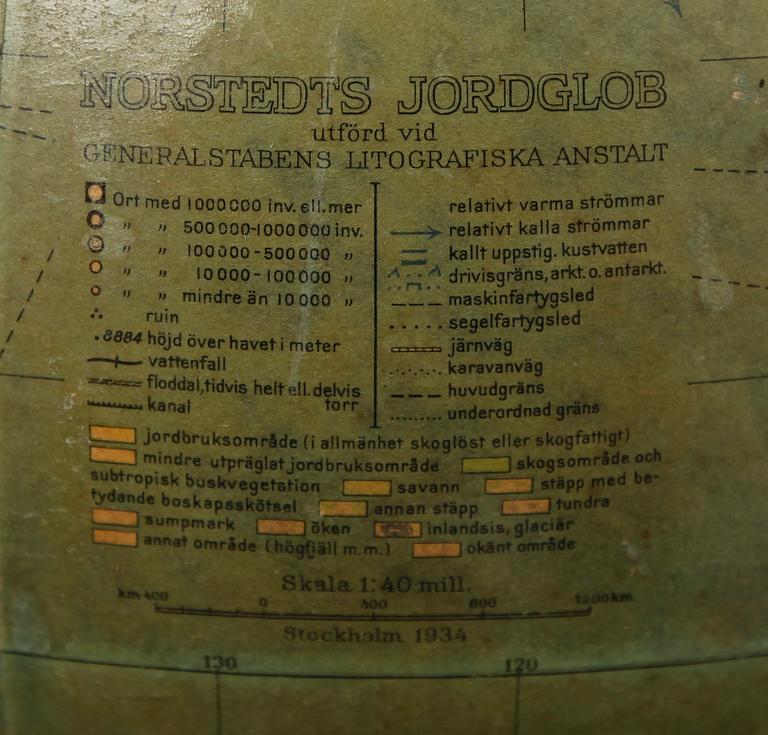 NORSTEDTS JORDGLOB
utförd vid
GENERALSTABENS LITOGRAFISKA ANSTALT
Ort med 1000000 inv. ell. mer
„ „ 500000-1000000 inv.
„ „ 100000-500000 „
„ „ 10000-100000 „
„ „ mindre än 10000 „
ruin
.8884 höjd över havet i meter
vattenfall
floddal, tidvis helt ell. delvis
torr
kanal
relativt varma strömmar
relativt kalla strömmar
kallt uppstig. kustvatten
drivisgräns, arkt. o. antarkt.
maskinfartygsled
segelfartygsled
järnväg
karavanväg
huvudgräns
underordnad gräns
jordbruksområde (i allmänhet skoglöst eller skogfattigt)
mindre utpräglat jordbruksområde skogsområde och
subtropisk buskvegetation savann stäpp med be-
tydande boskapsskötsel annan stäpp tundra
sumpmark öken inlandsis, glaciär
annat område (högfjäll m.m.) okänt område
Skala 1:40 mill.
km 400 0 400 800 1200 km
Stockholm 1934
130 120